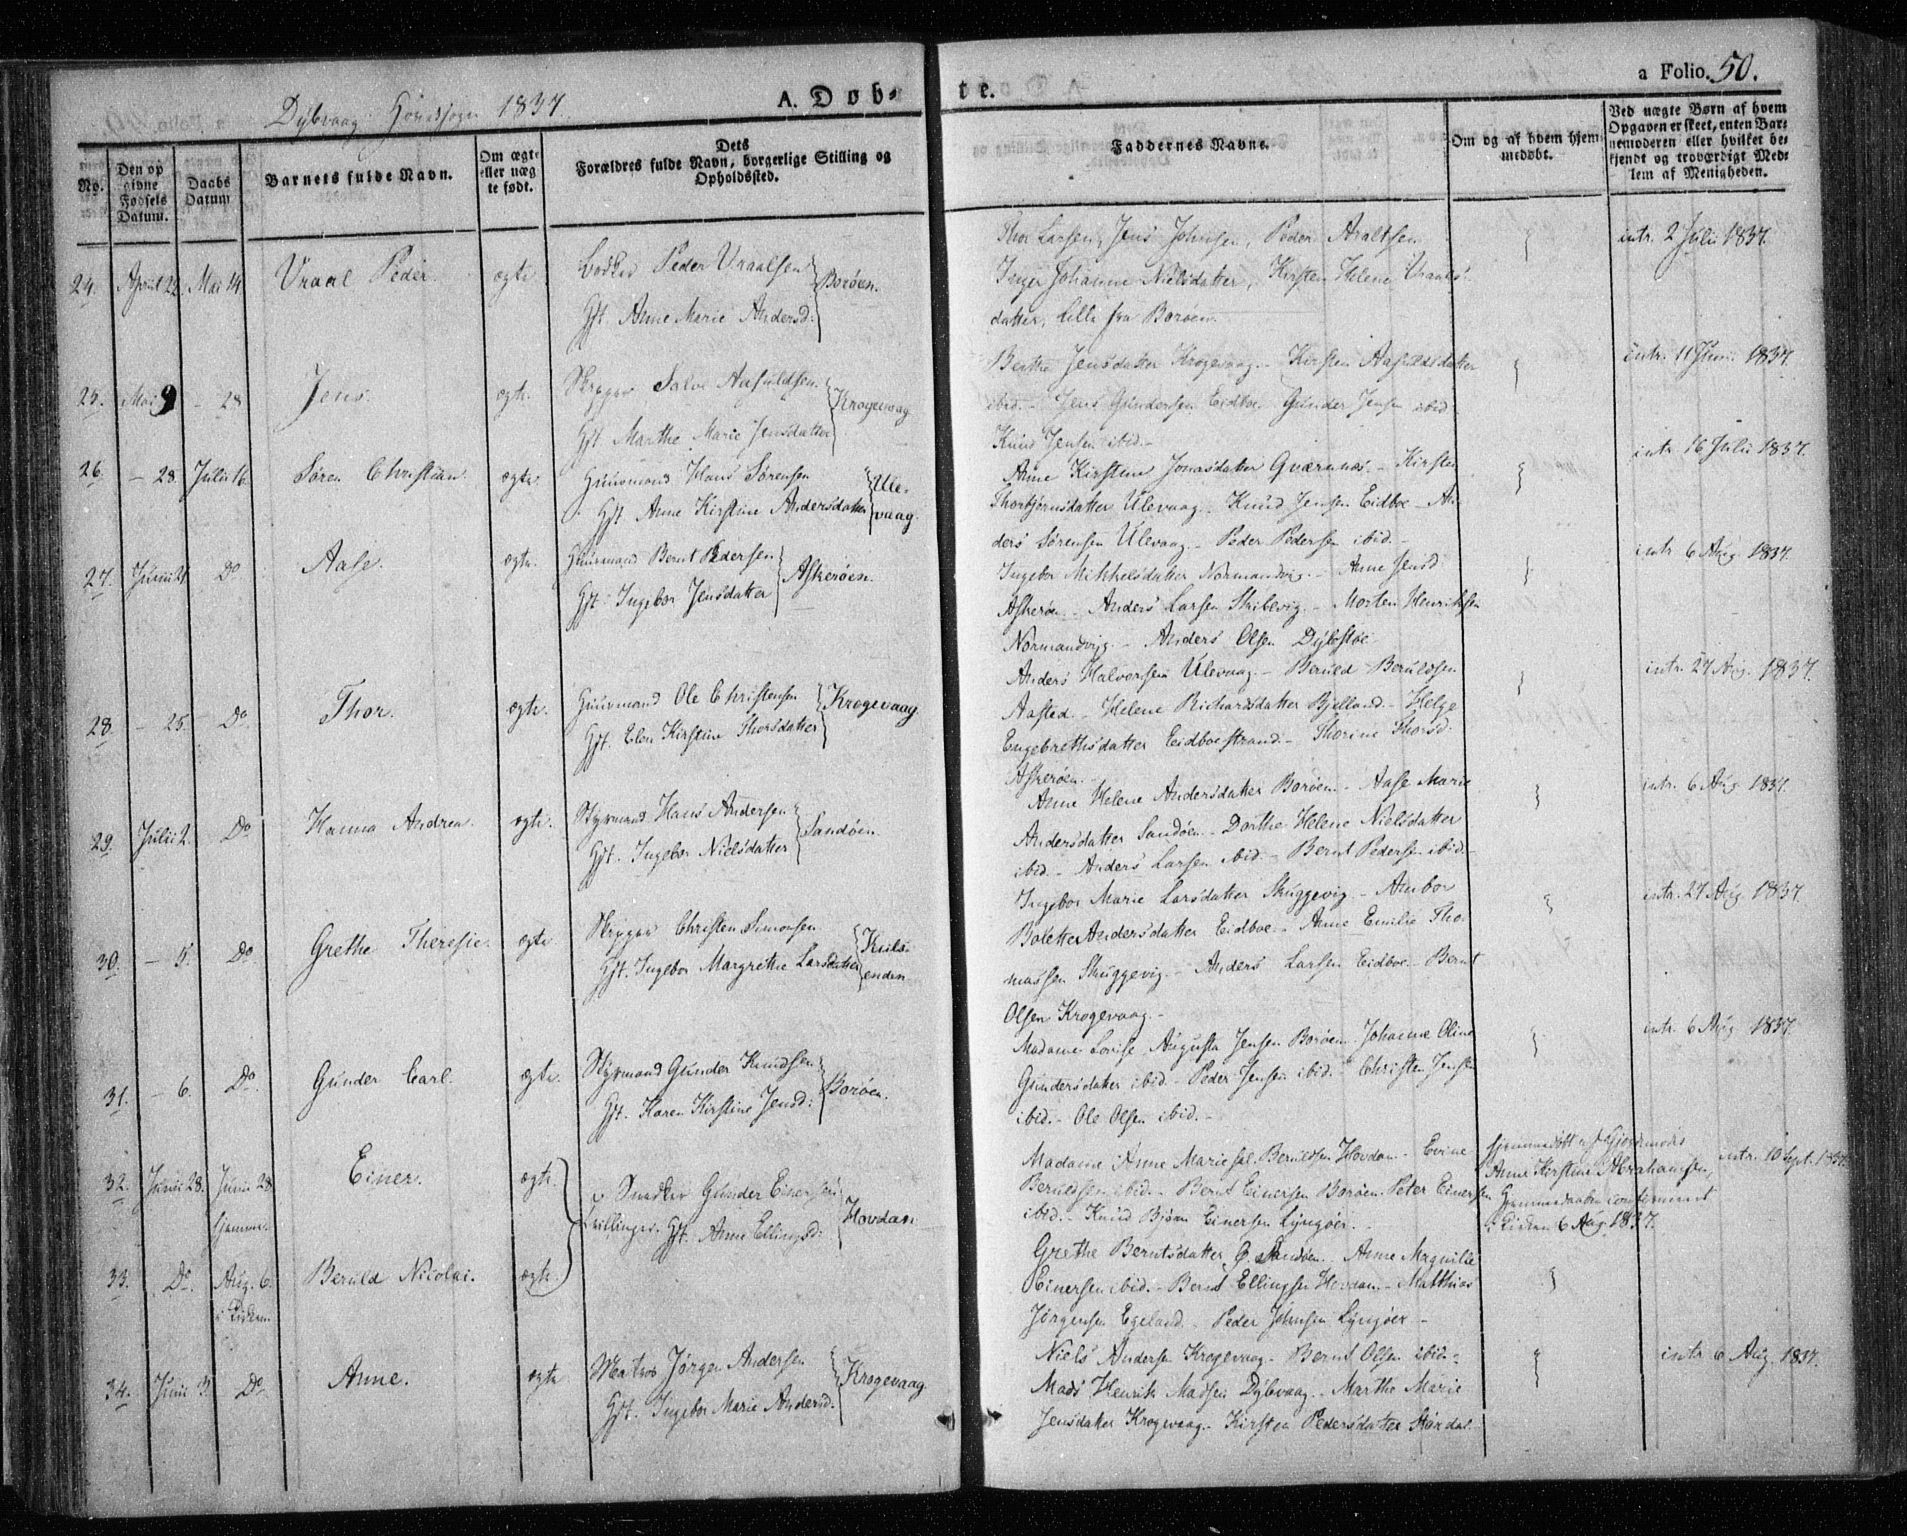 Dybvaag Hovedsogn 1837.
A. Døb-
te.
a Folio. 50.
No.
Den op
givne
Fødsels
Datum.
Daabs
Datum
Barnets fulde Navn.
Om ægte
eller uæg
te født.
Dets
Forældres fulde Navn, borgerlige Stilling og
Opholdssted.
Faddernes Navne.
Om og af hvem hjem-
medøbt.
Ved uægte Børn af hvem
Opgaven er skeet, enten Bar-
nemoderen eller hvilket be-
kjendt og troværdigt Med-
lem af Menigheden.
24. April 22. Mai 14 Uraal Peder. ægte
Peder Uraalsen
Gft. Anne Marie Andersd:
Borøen.
Thor Larsen, Jens Johnsen, Peder
Inger Johanne Nielsdatter, Kirsten Helene Uraals-
datter, fra Borøen.
intr. 2 Julii 1837.
25. Mai 9 - 28 Jens ægte.
Salve Aasuldsen
Gft. Marthe Marie Jensdatter
Krogevaag
Berthe Jensdatter Krogevaag - Kirsten Aasuldsdatter
ibid. - Jens Gundersen Eidboe Gunder Jensen ibid
Knud Jensen ibid. -
intr. 11 Juni 1837.
26. - 28. Julii 16. Søren Christian ægte
Huusmand Hans Sørensen
Gft. Anne Kirstine Andersdatter
Ule-
vaag.
Anne Kirstine Jonasdatter Qværnnæs. - Kirsten
Thorbjørnsdatter Ulevaag. Knud Jensen Eidboe - An-
ders Sørensen Ulevaag - Peder Pedersen ibid. -
intr. 16 Julii 1837.
27. Junii 21 Do Aase. ægte.
Huusmand Bernt Pedersen
Gft. Ingebor Jensdatter
Askerøen.
Ingebor Mikkelsdatter Normandvig. - Anne Jensd
Askerøen - Anders Larsen Skibevig. - Morten Henriksen
Normandvig. - Anders Olsen Dybestøe
intr 6 Aug 1837.
28. - 25. - Do. Thor. ægte.
Huusmand Ole Christensen
Gft. Elen Kirstine Thorsdatter
Krogevaag
Anders Halvorsen Ulevaag. - Beruld Beruldsen
Aasted - Helene Richardsdatter Bjelland - Helge
Engebrethsdatter Eidboestrand - Thorine Thorsd.
Askerøen. -
intr. 27 Aug. 1837.
29. Julii 2. Do Hanna Andrea. ægte.
Styrmand Hans Andersen
Gft. Ingebor Nielsdatter
Sandøen.
Anne Helene Andersdatter Borøen - Aase Marie
Andersdatter Sandøen - Dorthe Helene Nielsdatter
ibid. - Anders Larsen ibid - Bernt Pedersen ibid. -
intr. 6 Aug 1837.
30. - 5. Do Grethe Theresie. ægte
Christen Simonsen
Gft. Ingebor Margrethe Larsdatter
Ingebor Marie Larsdatter Skuggevig - Ambor
Bolette Andersdatter Eidboe. - Anne Emilie Tho-
massen Skuggevig. - Anders Larsen Eidboe - Bernt
Olsen Krogevaag. -
intr. 27 Aug 1837.
31. - 6. Do. Gunder Carl. ægte.
Styrmand Gunder Knudsen
Gft. Karen Kirstine Jensd:
Borøen.
Madame Lovise Augusta Jensen Borøen Johanne Oline
Gundersdatter ibid - Peder Jensen ibid. - Christen Jensen
ibid. - Ole Olsen ibid. -
intr. 6 Aug 1837.
32. Junii 28. Junii 28 hjemme. Einer. ægte.
Tvillinger.
Gunder Einersen
Gft. Anne Ellingsd:
Hovdan
Madame Anne Marie Beruldsen Hovdan - Evine
Beruldsen ibid. - Bernt Einersen Borøen - Peter Einersen
ibid. - Knud Bjørn Einersen Lyngøer. -
hjemmedøbt af Gjordemoder
Anne Kirstine Abrahamsen,
Hjemmedaaben confirmeret
i Kirken 6 Aug 1837.
intr. 10 Sept. 1837.
33. Do. Aug. 6. i Kirken Beruld Nicolai. ægte
Grethe Berntsdatter Sandøen. - Anne
Einersen ibid. - Bernt Ellingsen Hovdan - Matthias
Jørgensen Egeland. - Peder Johnsen Lyngøer -
34. Junii 3. Do. Anne. ægte
Matros Jørgen Andersen
Gft. Ingebor Marie Andersd.
Krogevaag
Niels Andersen Krogevaag - Bernt Olsen ibid. -
Mads Henrik Madsen Dybvaag. - Marthe Marie
Jensdatter Krogevaag - Kirsten Pedersdatter Støxdal
intr 6 Aug 1837.